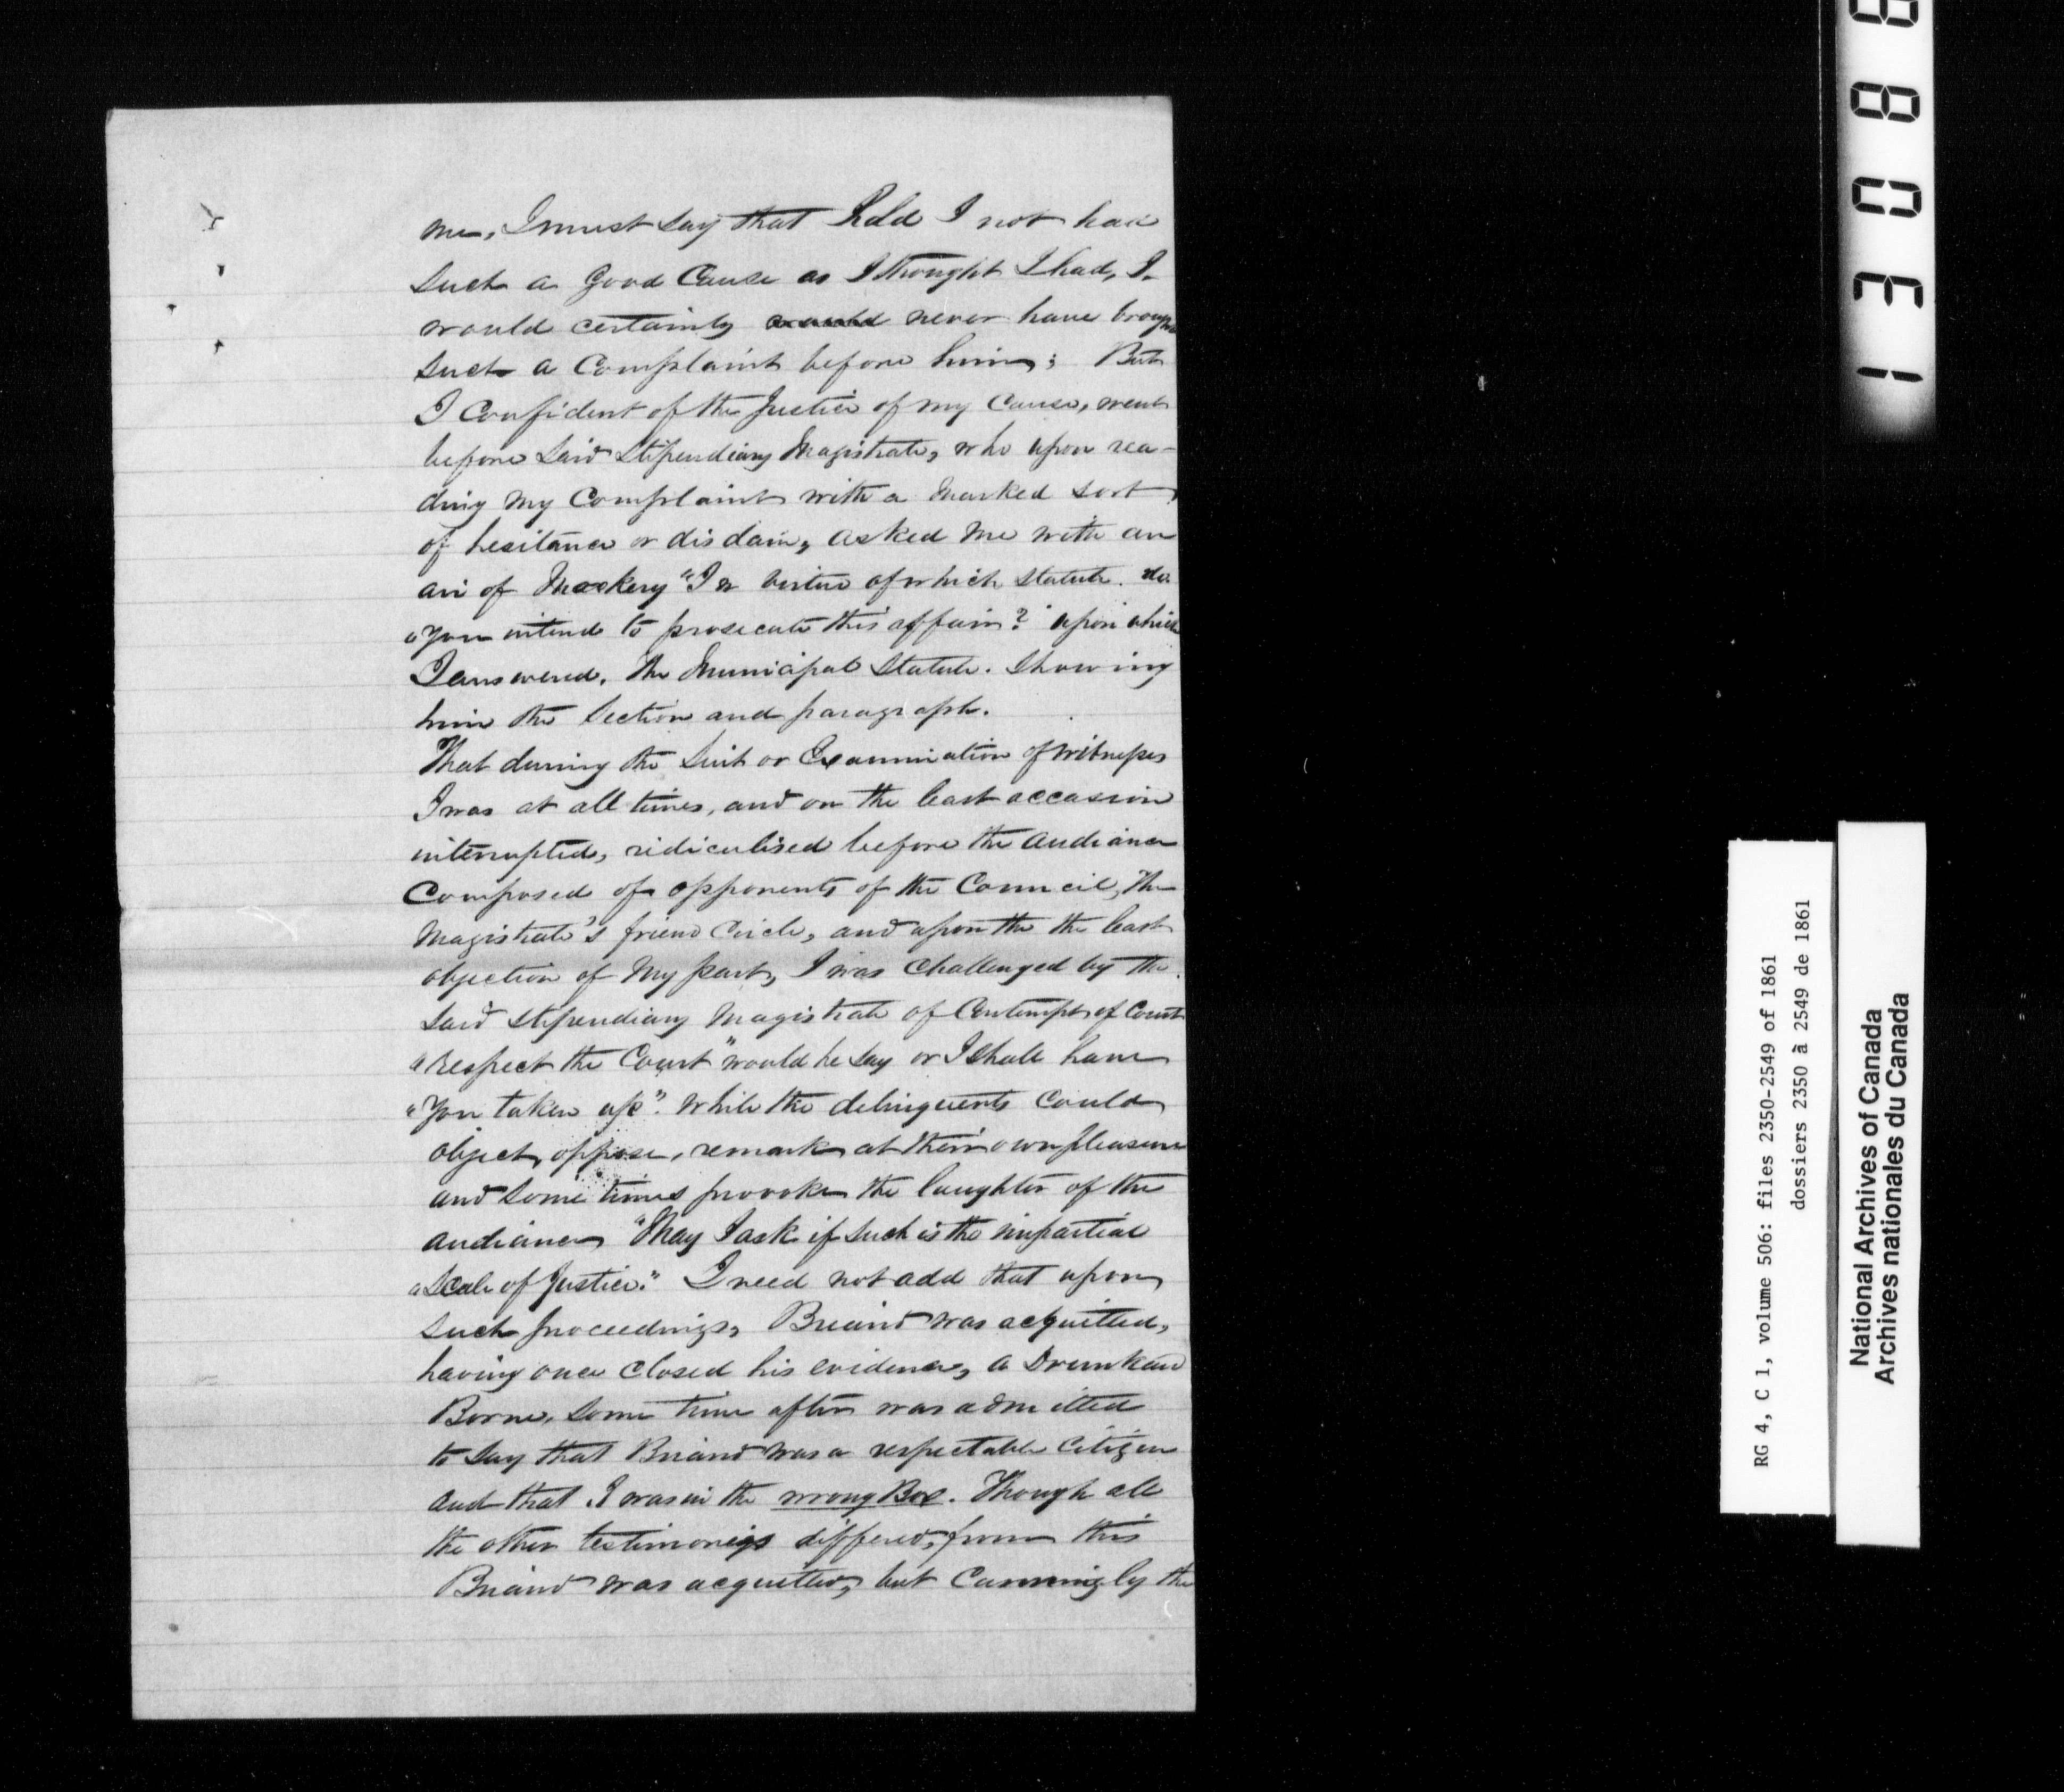 me, I must say that Held I not had
such a good Cause as I thought I had, I
would certainly never have brought
such a Complaint before him; But
I Confident of the Justice of my Cause, went
before said Stipendiary Magistrate, who upon rea-
ding my Complaint with a marked sort
of hesitance or disdain, asked me with an
air of Mockery "In virtue of which Statute do
"you intend to prosecute this affair? upon which
I answered, the Municipal Statute. Showing
him the Section and paragraph.
That during the Suit or Examination of witnesses
I was at all times, and on the least occassion
interrupted, ridiculised before the Audiance
Composed of opponents of the Council, the
Magistrate's friend Circle, and upon the the least
objection of My part, I was challenged by the
said Stipendiary Magistrate of Contempt of Court
"respect the Court" would he say or I shall have
"You taken up". While the delinquents Could
object, oppose, remark at their own pleasure
and some times provoke the laughter of the
audiance "May I ask if such is the impartial
"Scale of Justice." I need not add that upon
such proceedings, Briand was acquitted,
having once closed his evidence, a Drunkard
Borne, some time after was admitted
to say that Briand was a respectable Citizen
and that I was in the wrong Box. Though all
the other testimonies differed, from this
Briand was acquitted, but Cunningly the
13088
RG 4, C 1, volume 506: files 2350-2549 of 1861
dossiers 2350 à 2549 de 1861
National Archives of Canada
Archives nationales du Canada